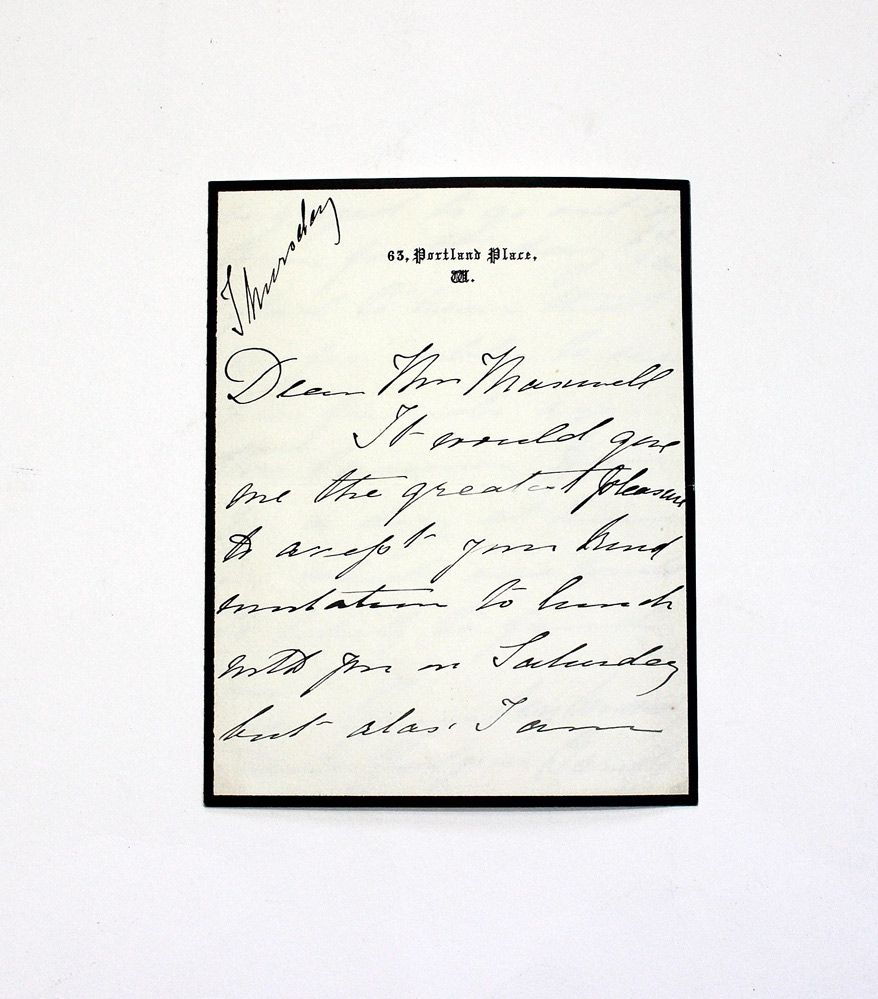 Thursday
63, Portland Place,
W.
Dear Mr Maxwell
It would give
me the greatest pleasure
to accept your kind
invitation to lunch
with you on Saturday
but alas. I am